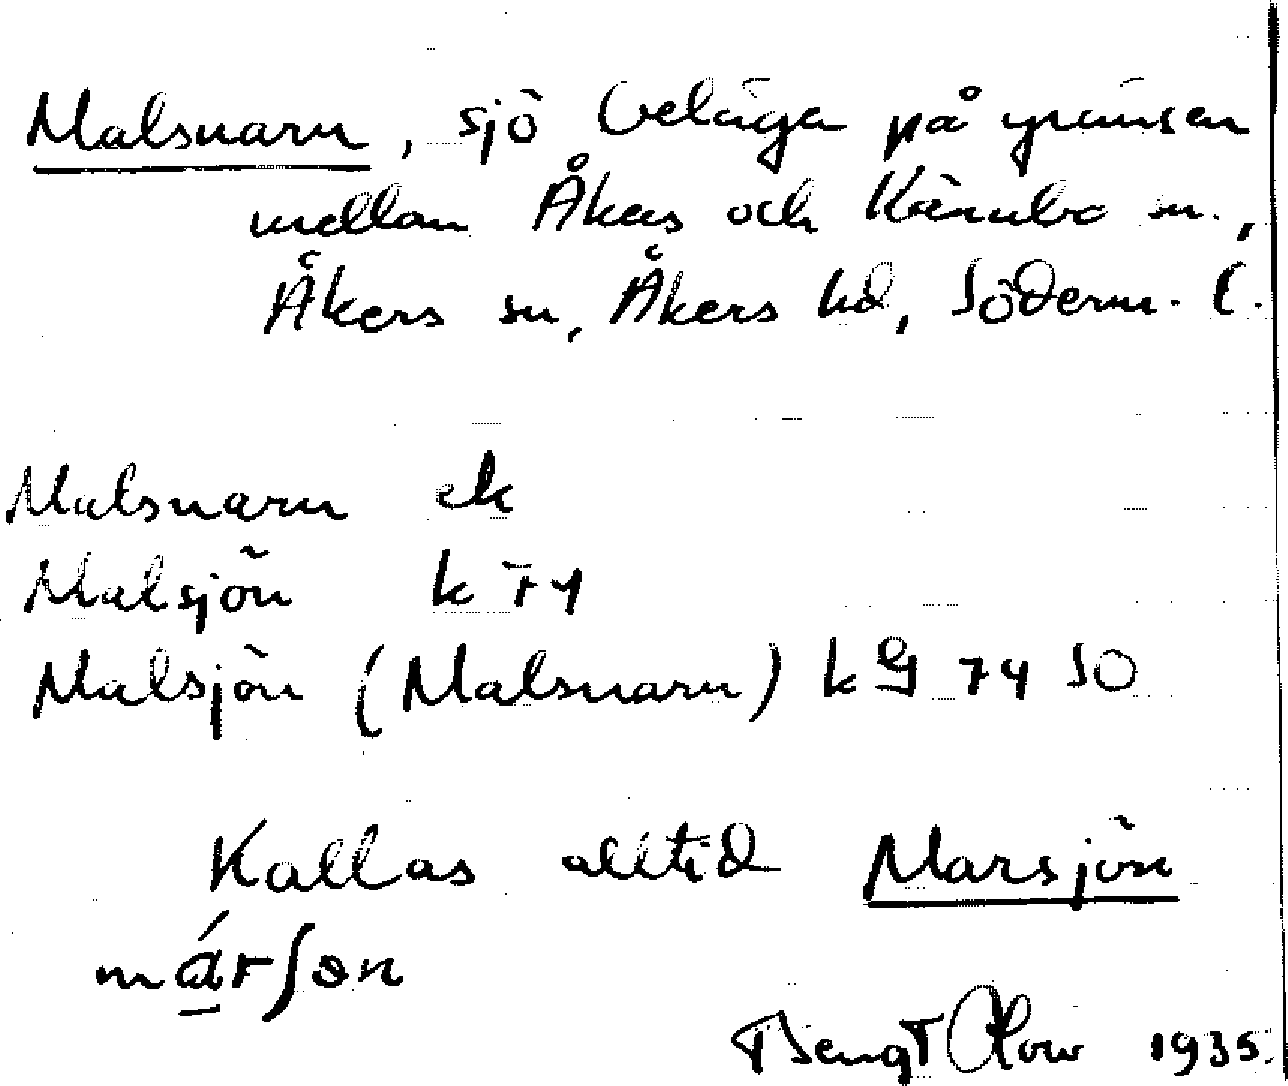 Malsnarn, sjö belägen på gränsen
mellan Åkers och Kärnbo sn.,
Åkers sn, Åkers hd, Söderm. l.
Malsnarn ek
Malsjön k 74
Malsjön (Malsnarn) k G 74 SO
Kallas alltid Marsjön
márʃən
Bengt 1935.